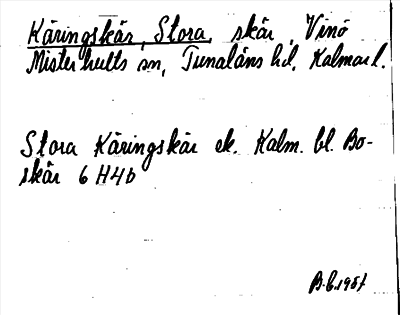 Käringskär, Stora, skär, Vinö
Misterhults sn, Tunaläns hd, Kalmar l.
Stora Käringskär ek. Kalm. bl. Bo-
skär 6 H4b